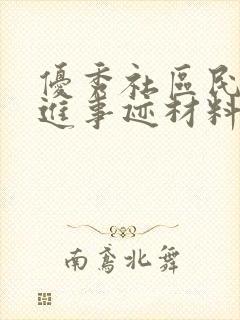 優秀社區民
進事迹材料
南鳶北舞